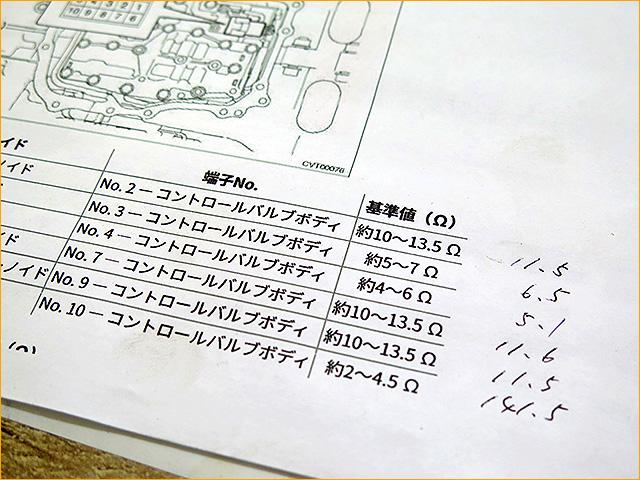 5 4 3 2 1
10 9 8 7 6
CVT00076
イド
端子No.
基準値（Ω）
ノイド
No. 2 － コントロールバルブボディ 約10～13.5 Ω 11.5
No. 3 － コントロールバルブボディ 約5～7 Ω 6.5
No. 4 － コントロールバルブボディ 約4～6 Ω 5.1
イド
No. 7 － コントロールバルブボディ 約10～13.5 Ω 11.6
ノイド
No. 9 － コントロールバルブボディ 約10～13.5 Ω 11.5
No. 10 － コントロールバルブボディ 約2～4.5 Ω 141.5